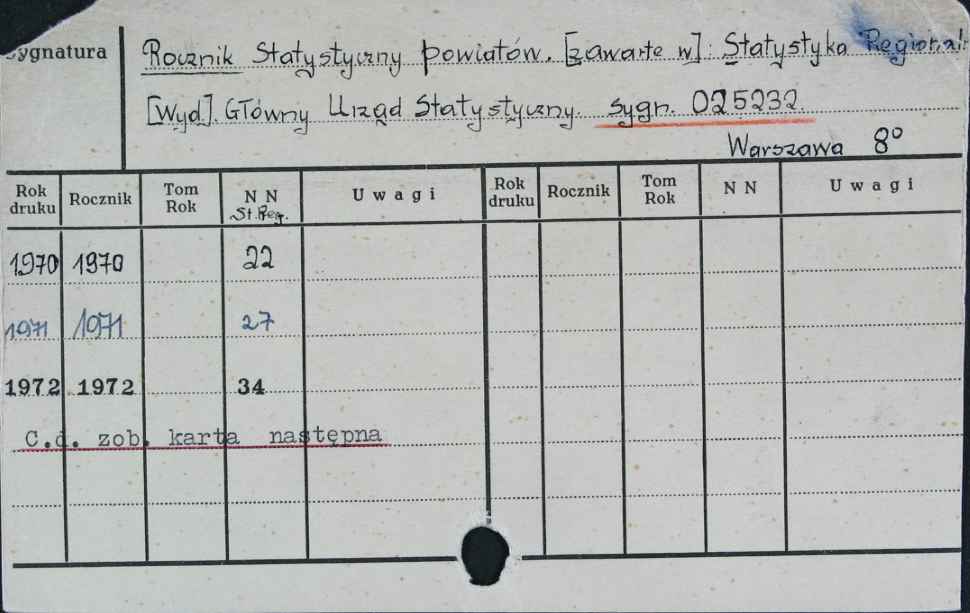 ygnatura
Rocznik Statystyczny powiatów. [zawarte w]: Statystyka Regional.
[Wyd]. Główny Urząd Statystyczny. sygn. 025232
Warszawa 8°
Rok druku Rocznik Tom Rok N N St.Reg. Uwagi Rok druku Rocznik Tom Rok N N Uwagi
1970 1970 22
1971 1971 27
1972 1972 34
C.d. zob. karta następna